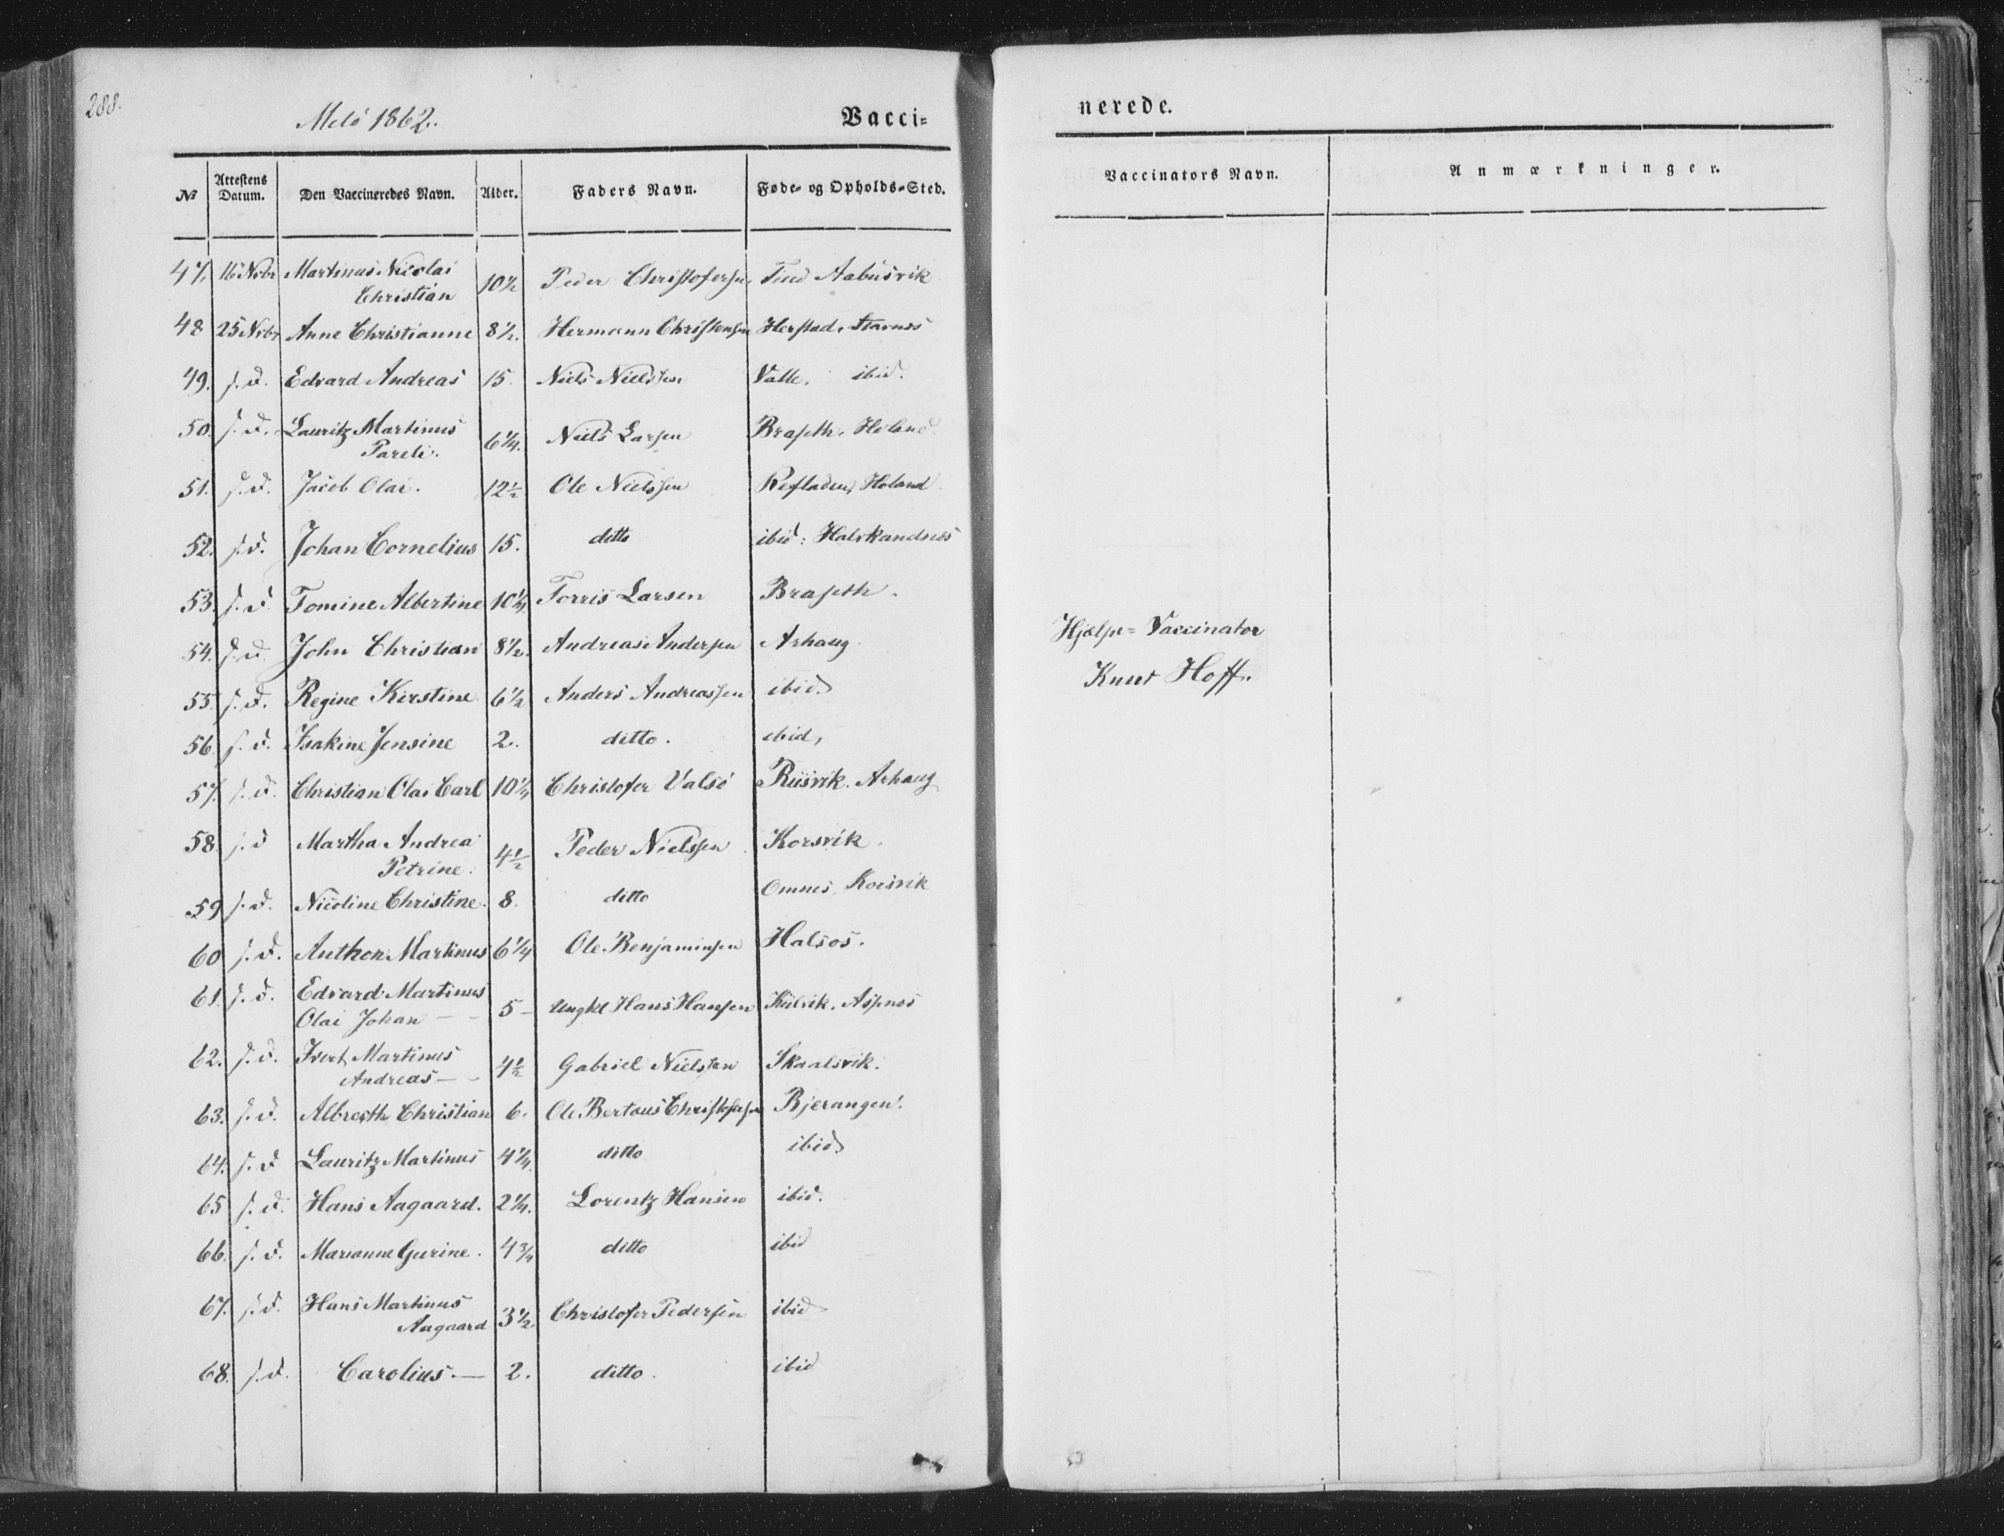 288.
Melö 1862.
Vacci=
№ Attestens Datum. Den Vaccineredes Navn. Alder. Faders Navn. Føde- og Opholds-Sted.
47. 16 Nvbr Martinus Nicolai
Christian 10½ Peder Christofersen Aabusvik
48 25 Nvbr Anne Christianne 8½. Hermann Christensen Herstad. Stavnes
49. s. d. Edvard Andreas 15. Niels Nielssen Valle. ibid.
50. s. d. Lauritz Martinus
Pareli. 6¼. Niels Larsen Braseth. Holand
51. s. d. Jacob Olai. 12½ Ole Nielssen Refladen, Holand
52. s. d. Johan Cornelius 15. ditto ibid: Halskandnes
53. s. d Tomine Albertine 10¼. Torris Larsen Braseth.
54. s. d. John Christian 8½. Andreas Andersen Arhaug
55. s. d. Regine Kirstine 6½ Anders Andreassen ibid.
56. s. d. Isakine Jensine 2. ditto. ibid,
57. s. d. Christian Olai Carl 10¼ Christofer Valsö Riisvik. Arhaug
58. s. d Martha Andrea
Petrine. 4½ Peder Nielssen Korsvik.
59 s. d. Nicoline Christine. 8. ditto Omnes Korsvik
60 s. d. Anthon Martinus 6¼ Ole Benjaminsen Halsos.
61. s. d. Edvard Martinus
Olai Johan — 5 – Ungkl Hans Hansen Kilvik. Aspnes
62. s. d. Ivert Martinus
Andreas — 4½ Gabriel Nielsen Skaalsvik.
63. s. d. Albrecth Christian 6. Ole Bertaus Christofersen Bjerangen.
64. s. d Lauritz Martinus 4¼. ditto ibid
65 s. d. Hans Aagaard. 2¼. Lorentz Hansen ibid.
66. s. d. Marianne Gurine. 4¾ ditto ibid
67. s. d. Hans Martinus
Aagaard 3½ Christofer Pedersen ibid
68. s. d. Carolius. — 2. ditto. ibid
nerede.
Vaccinators Navn. Anmærkninger.
Hjælpe= Vaccinator
Knut Hoff.